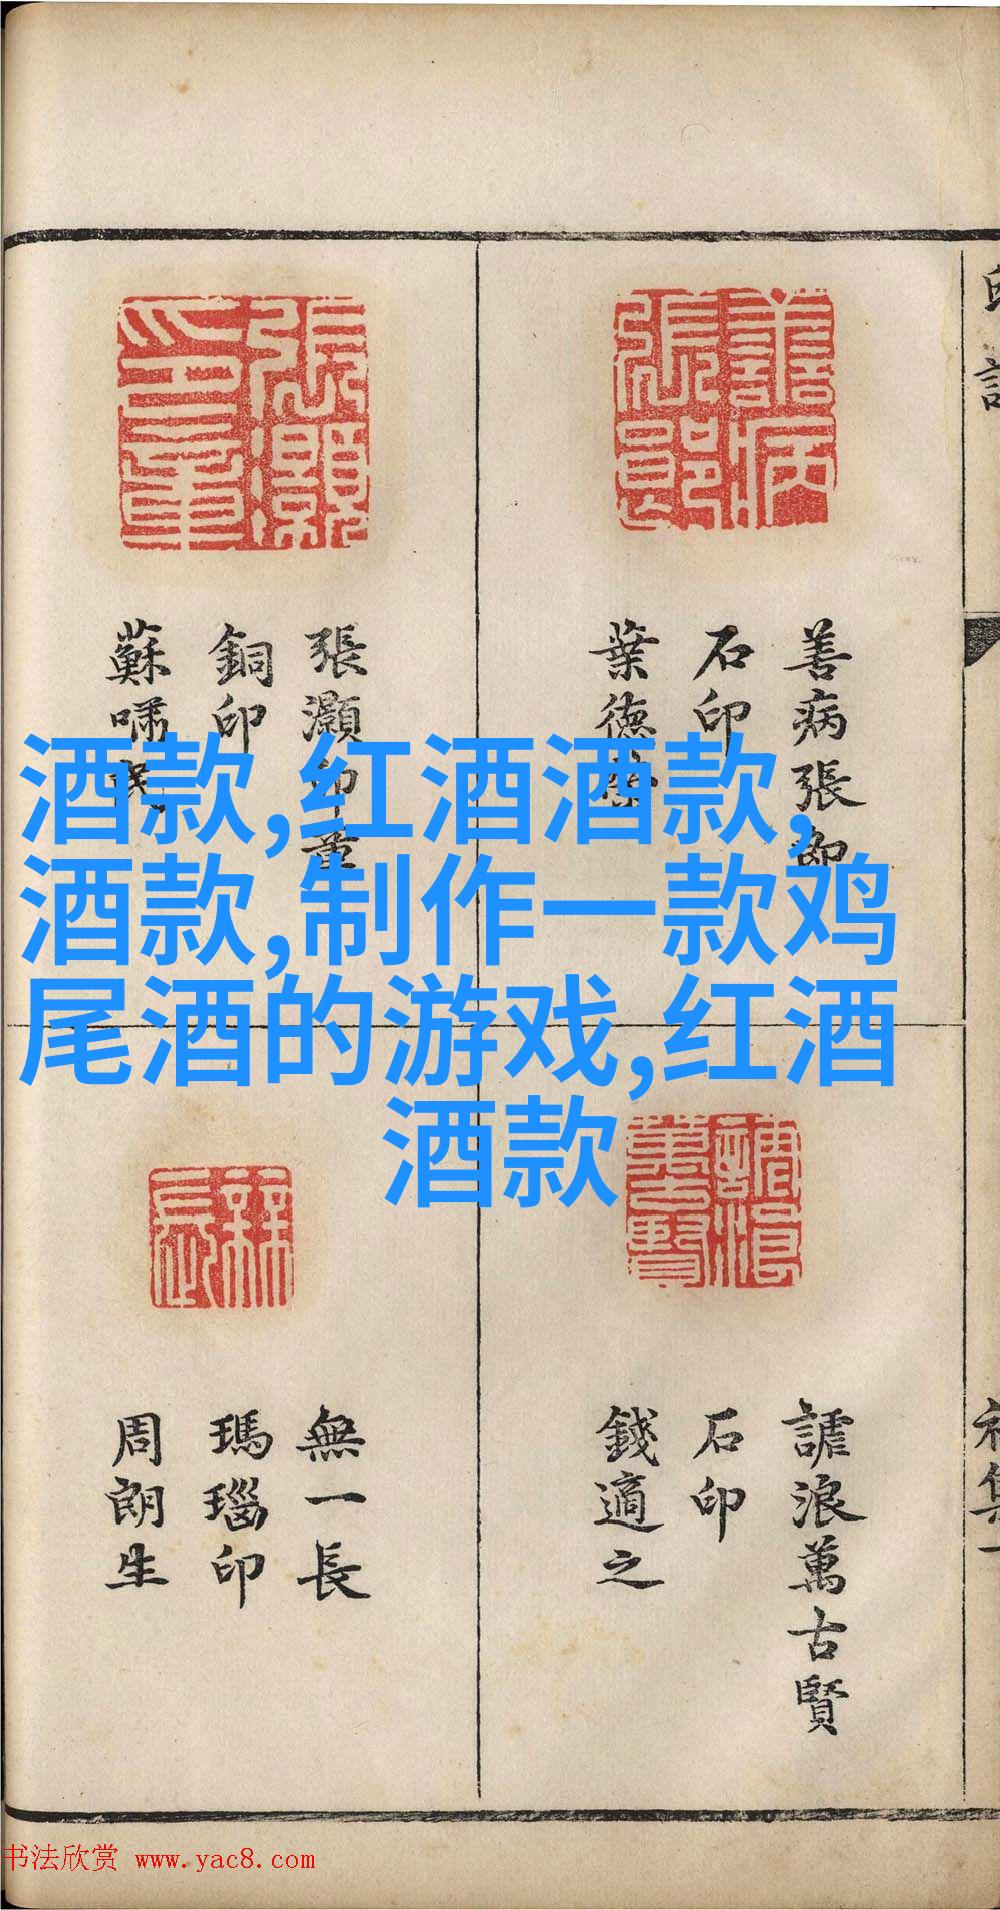 善病張郎
石印
葉德榮
張灝印章
銅印
蘇嘯民
酒款,红酒酒款,
酒款,制作一款鸡
尾酒的游戏,红酒
酒款
謔浪萬古賢
石印
錢適之
無一長
瑪瑙印
周朗生
初集一
书法欣赏 www.yac8.com